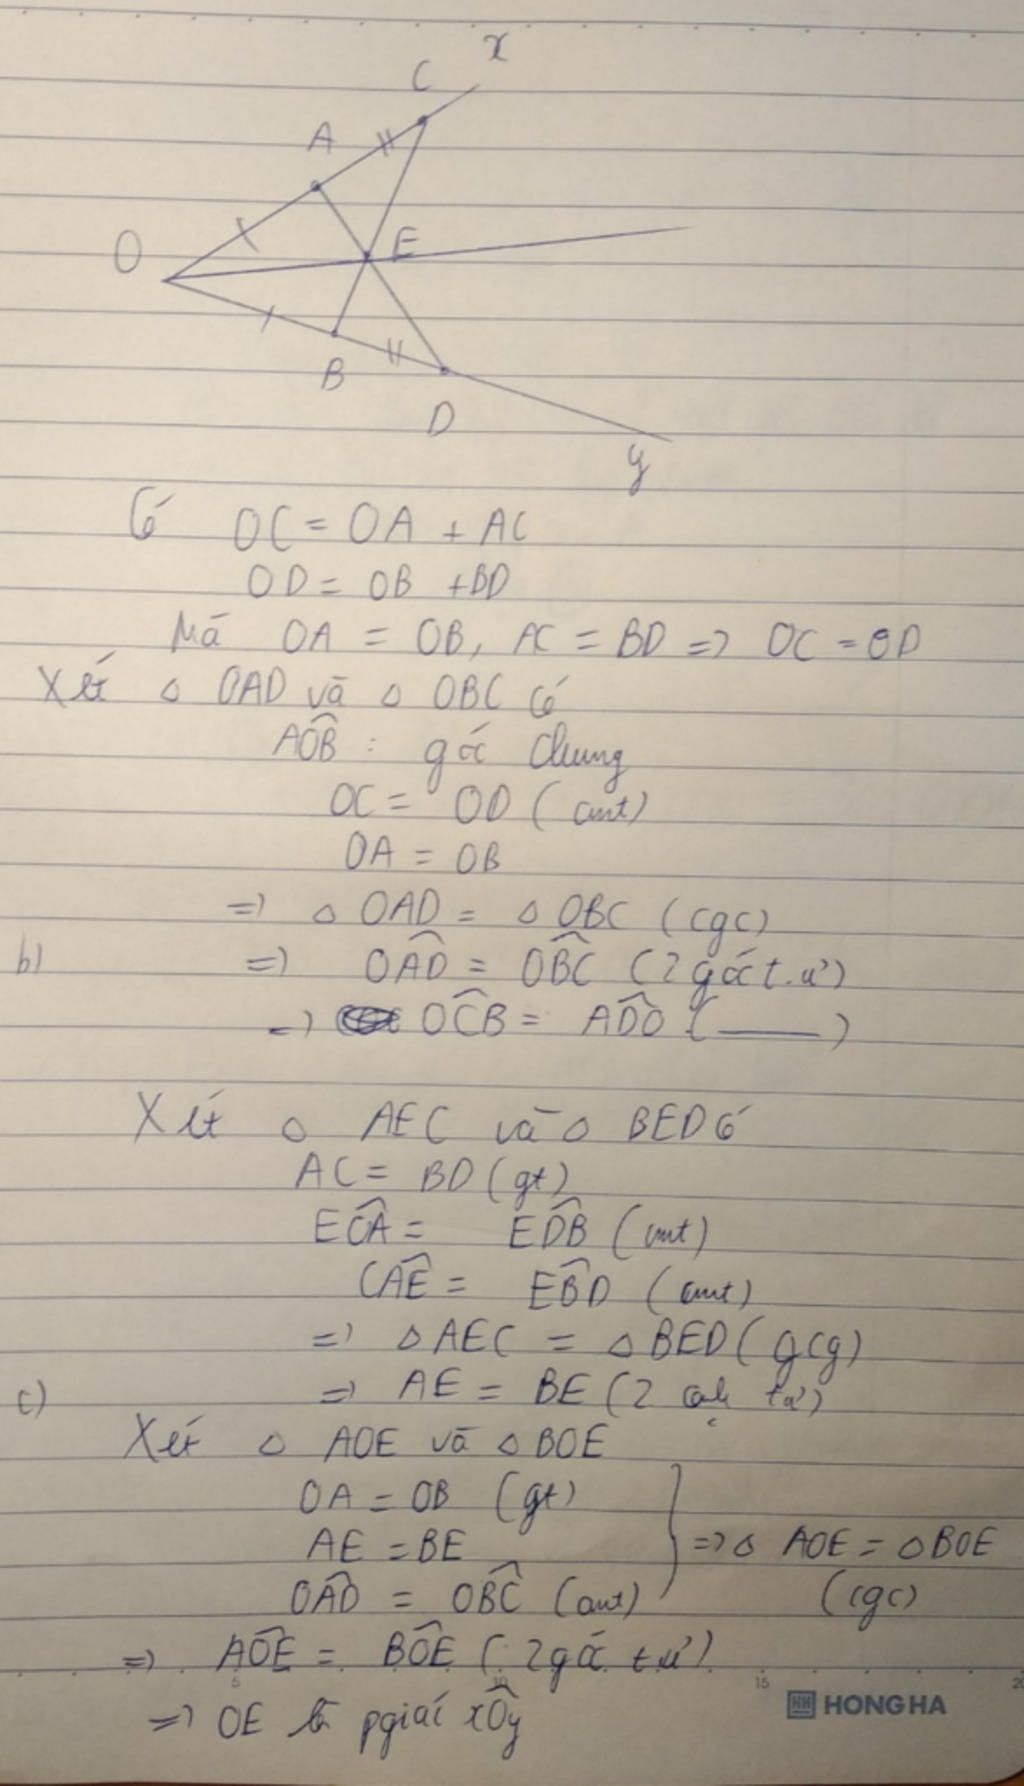 x
C
A
O
E
B
D
y
Có OC = OA + AC
OD = OB + BD
Mà OA = OB, AC = BD => OC = OD
Xét △ OAD và △ OBC có
AÔB : góc chung
OC = OD (cmt)
OA = OB
=> △ OAD = △ OBC (cgc)
b) => OÂD = OB̂C (2 góc t.ư)
=> OĈB = AD̂O (——)
Xét △ AEC và △ BED có
AC = BD (gt)
EĈA = ED̂B (cmt)
CÂE = EB̂D (cmt)
=> △ AEC = △ BED (gcg)
c) => AE = BE (2 cạh tư)
Xét △ AOE và △ BOE
OA = OB (gt)
AE = BE => △ AOE = △ BOE
OÂD = OB̂C (cmt) (cgc)
=> AÔE = BÔE (2 góc t.ư)
=> OE là pgiác xÔy
5 10 15 20
HONG HA